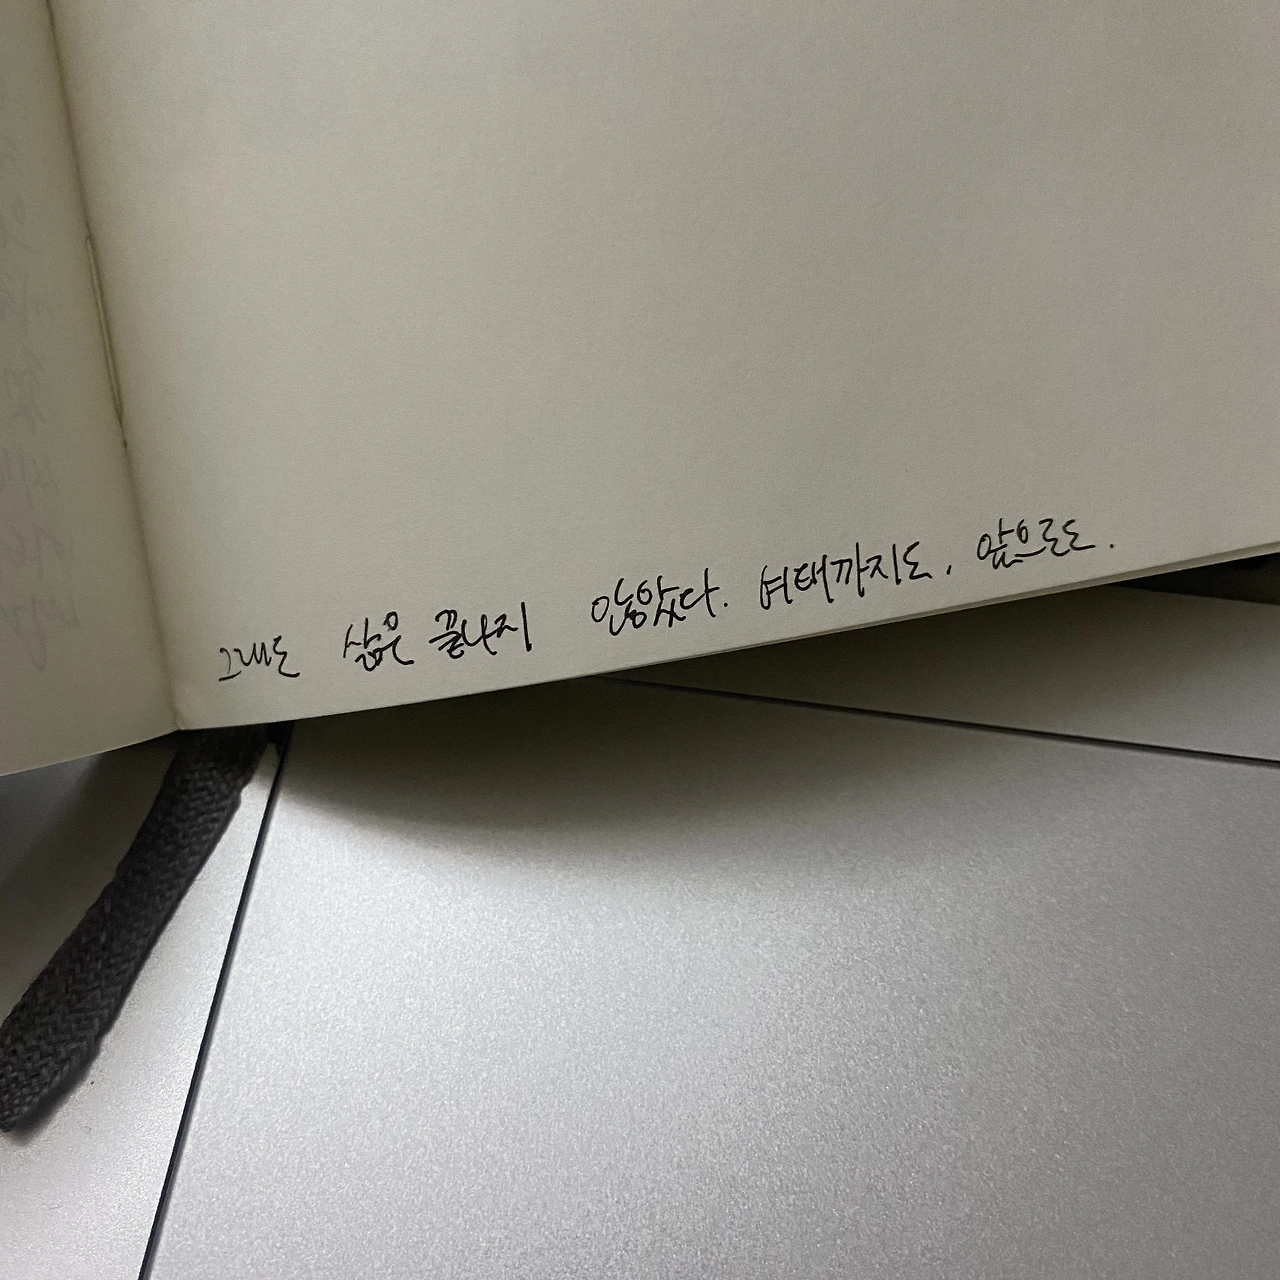 그래도 삶은 끝나지 않았다. 여태까지도, 앞으로도.